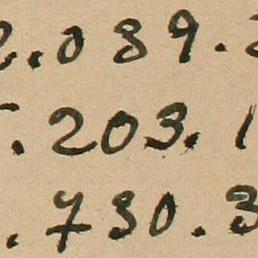 2.089.2
5.203.1
.730.3